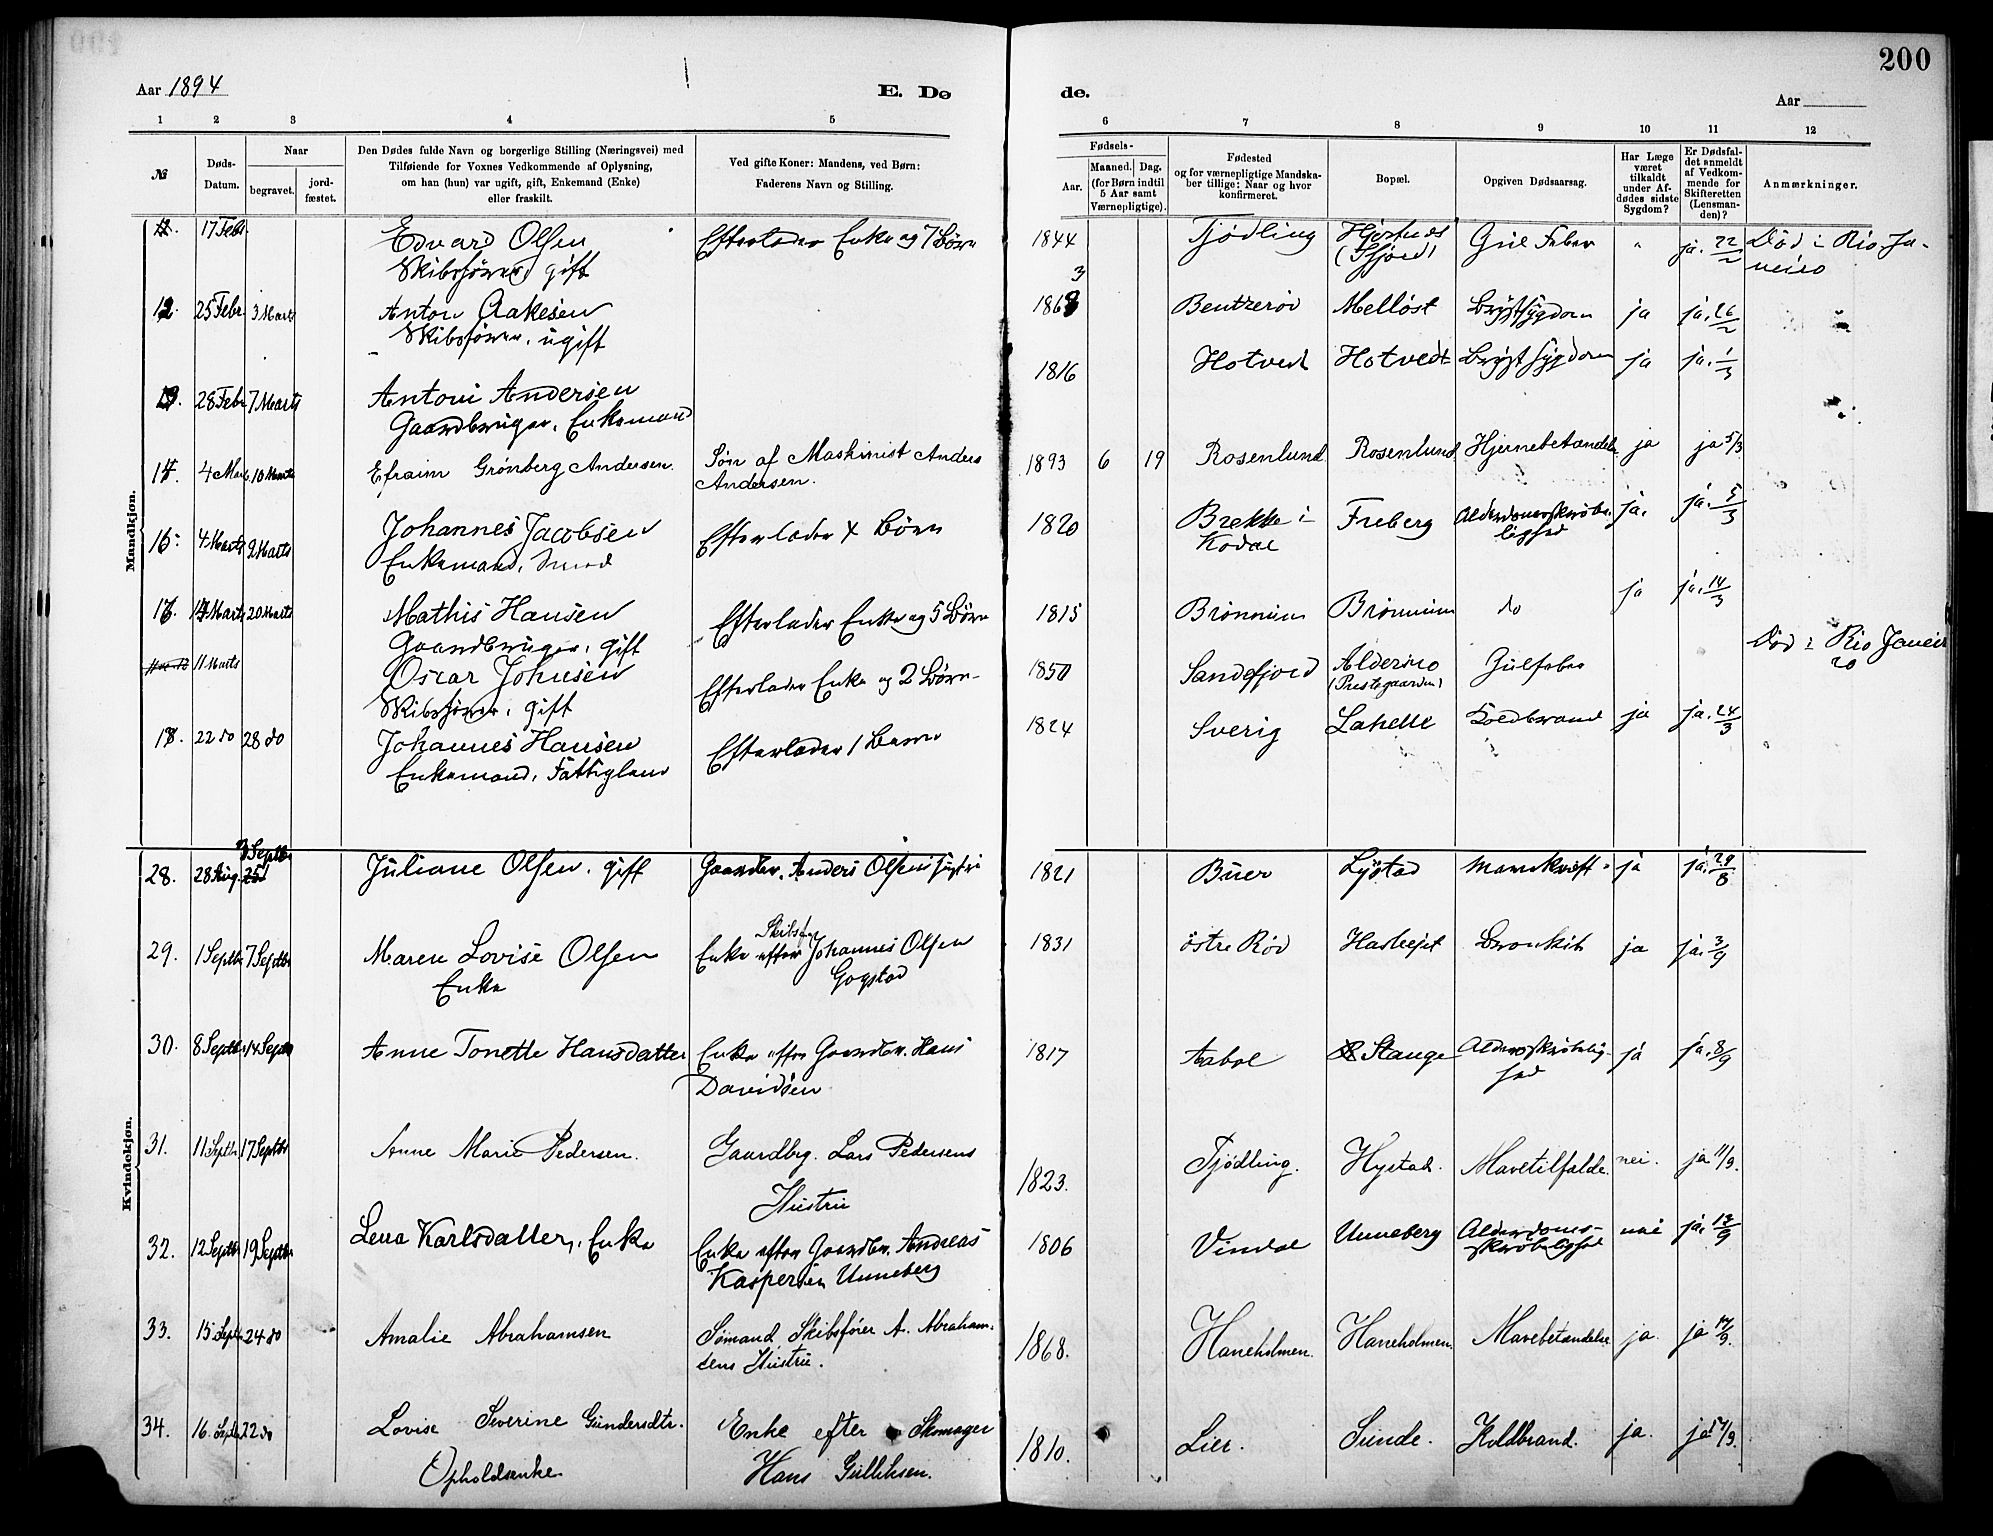 200
Aar 1894
E. Dø
de.
Aar
1 2 3 4 5 6 7 8 9 10 11 12
№
Døds-
Datum.
Naar
begravet.
jord-
fæstet.
Den Dødes fulde Navn og borgerlige Stilling (Næringsvei) med
Tilføiende for Voxnes Vedkommende af Oplysning,
om han (hun) var ugift, gift, Enkemand (Enke)
eller fraskilt.
Ved gifte Koner: Mandens, ved Børn:
Faderens Navn og Stilling.
Fødsels-
Aar.
Maaned. Dag.
(for Børn indtil
5 Aar samt
Værnepligtige).
Fødested
og for værnepligtige Mandska-
ber tillige: Naar og hvor
konfirmeret.
Bopæl.
Opgiven Dødsaarsag.
Har Læge
været
tilkaldt
under Af-
dødes sidste
Sygdom?
Er Dødsfal-
det anmeldt
af Vedkom-
mende for
Skifteretten
(Lensman-
den)?
Anmærkninger.
Mandkjøn.
17 Febr. Edvard Olsen Efterlader Enke og 7 Børn 1844 Tjødling Gul Feber " ja. 22/2 Død i Rio Ja-
Skibsfører, gift (Sfjord) neiro
12. 25 Febr 3 Marts Anton Aakesen 1863 Bentzerød Melløst Brystsygdom ja ja. 26/2
Skibsfører. ugift
28 Febr 7 Marts Antoni Andersen 1816 Hotved Hotvedt Brystsygdom ja ja. 1/3
Gaardbruger. Enkemand
4 Mar. 10 Marts Efraim Grønberg Andersen. Søn af Maskinist Anders 1893 6 19 Rosenlund Rosenlund Hjernebetændelse ja ja 5/3
Andersen.
4 Marts 9 Marts Johannes Jacobsen Efterlader 4 Børn 1820 Brekke i Freberg Alderdomsskrøbe- ja. ja. 5/3
Enkemand, Smed Kodal lighed
14 Marts 20 Marts Mathis Hansen Efterlader Enke og 5 Børn 1815 Brønnum Brønnum do ja ja. 14/3
Gaardbruger. gift
11 Marts Oscar Johnsen Efterlader Enke og 2 Børn 1850 Sandefjord Alderino Gulfeber Død i Rio Janei
Skibsfører. gift (Prestegaarden) ro
22 do 28 do Johannes Hansen Efterlader 1 Barn 1824 Sverig Lahelle Koldbrand ja ja. 24/3
Enkemand. Fattiglem
Kvindekjøn.
28. 28 Aug. 3 Septbr Juliane Olsen. gift Gaardbr. Anders Olsens Hustru 1821 Buer Lystad Mavekræft ja ja. 29/8
29. 1 Septbr 7 Septbr Maren Lovise Olsen Enke efter Skibsf. Johannes Olsen 1831 østre Rød Haslejet Bronkit ja ja. 3/9
Enke Gogstad
30. 8 Septbr 14 Septbr Anne Tonette Hansdatter Enke efter Gaardbr. Hans 1817 Aabol Stange Alderdomsskrøbelig- ja ja. 8/9
Davidsen hed
31. 11 Septbr 17 Septbr Anne Marie Pedersen. Gaardbrg. Lars Pedersens 1823. Tjødling. Hystad. Mavetilfælde. nei. ja 11/9.
Hustru
32. 12 Septbr 19 Septbr Lena Karlsdatter, Enke Enke efter Gaardbr. Andreas 1806 Vindal Unneberg Alderdoms- nei ja. 13/9
Kaspersen Unneberg skrøbelighed
33. 15 Septb 24 do Amalie Abrahamsen Sømand Skibsfører A. Abraham- 1868. Haneholmen. Haneholmen. Mavebetændelse ja. ja 17/9.
sens Hustru.
34. 16. Septb 22 do Lovise Severine Gundersdtr. Enke efter Skomager 1810. Lier. Sunde. Koldbrand. ja. ja 17/9.
Opholdsenke Hans Gulliksen.